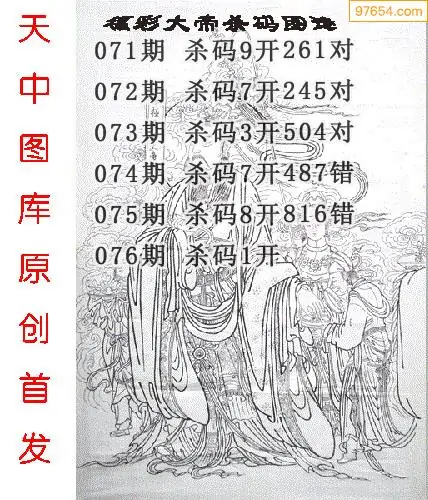 97654.com
福彩大帝杀码图迷
071期 杀码9开261对
072期 杀码7开245对
073期 杀码3开504对
074期 杀码7开487错
075期 杀码8开816错
076期 杀码1开
天中图库原创首发